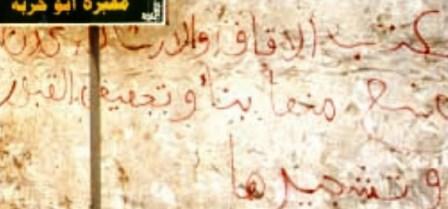 مقبرة ابو حربه
مكتب الاوقاف والارشاد
يمنع منعا بيتا و تجصيص القبور
و تشجيرها